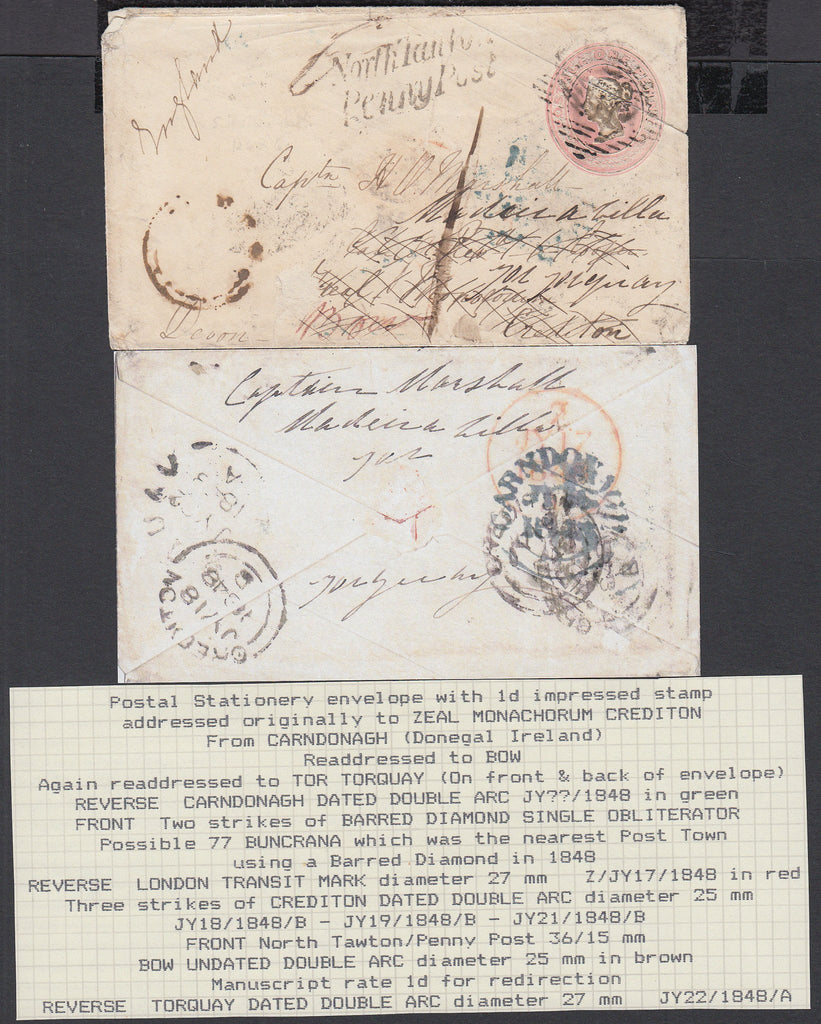 England
North Tawton
Penny Post
Captn H Marshall
Madeira Villa
Tor Torquay
Crediton
Devon
Bow
Captain Marshall
Madeira Villa
Tor
Torquay
CARNDONAGH
CREDITON
JY 18
1848
B
Postal Stationery envelope with 1d impressed stamp
addressed originally to ZEAL MONACHORUM CREDITON
From CARNDONAGH (Donegal Ireland)
Readdressed to BOW
Again readdressed to TOR TORQUAY (On front & back of envelope)
REVERSE CARNDONAGH DATED DOUBLE ARC JY??/1848 in green
FRONT Two strikes of BARRED DIAMOND SINGLE OBLITERATOR
Possible 77 BUNCRANA which was the nearest Post Town
using a Barred Diamond in 1848
REVERSE LONDON TRANSIT MARK diameter 27 mm Z/JY17/1848 in red
Three strikes of CREDITON DATED DOUBLE ARC diameter 25 mm
JY18/1848/B - JY19/1848/B - JY21/1848/B
FRONT North Tawton/Penny Post 36/15 mm
BOW UNDATED DOUBLE ARC diameter 25 mm in brown
Manuscript rate 1d for redirection
REVERSE TORQUAY DATED DOUBLE ARC diameter 27 mm JY22/1848/A